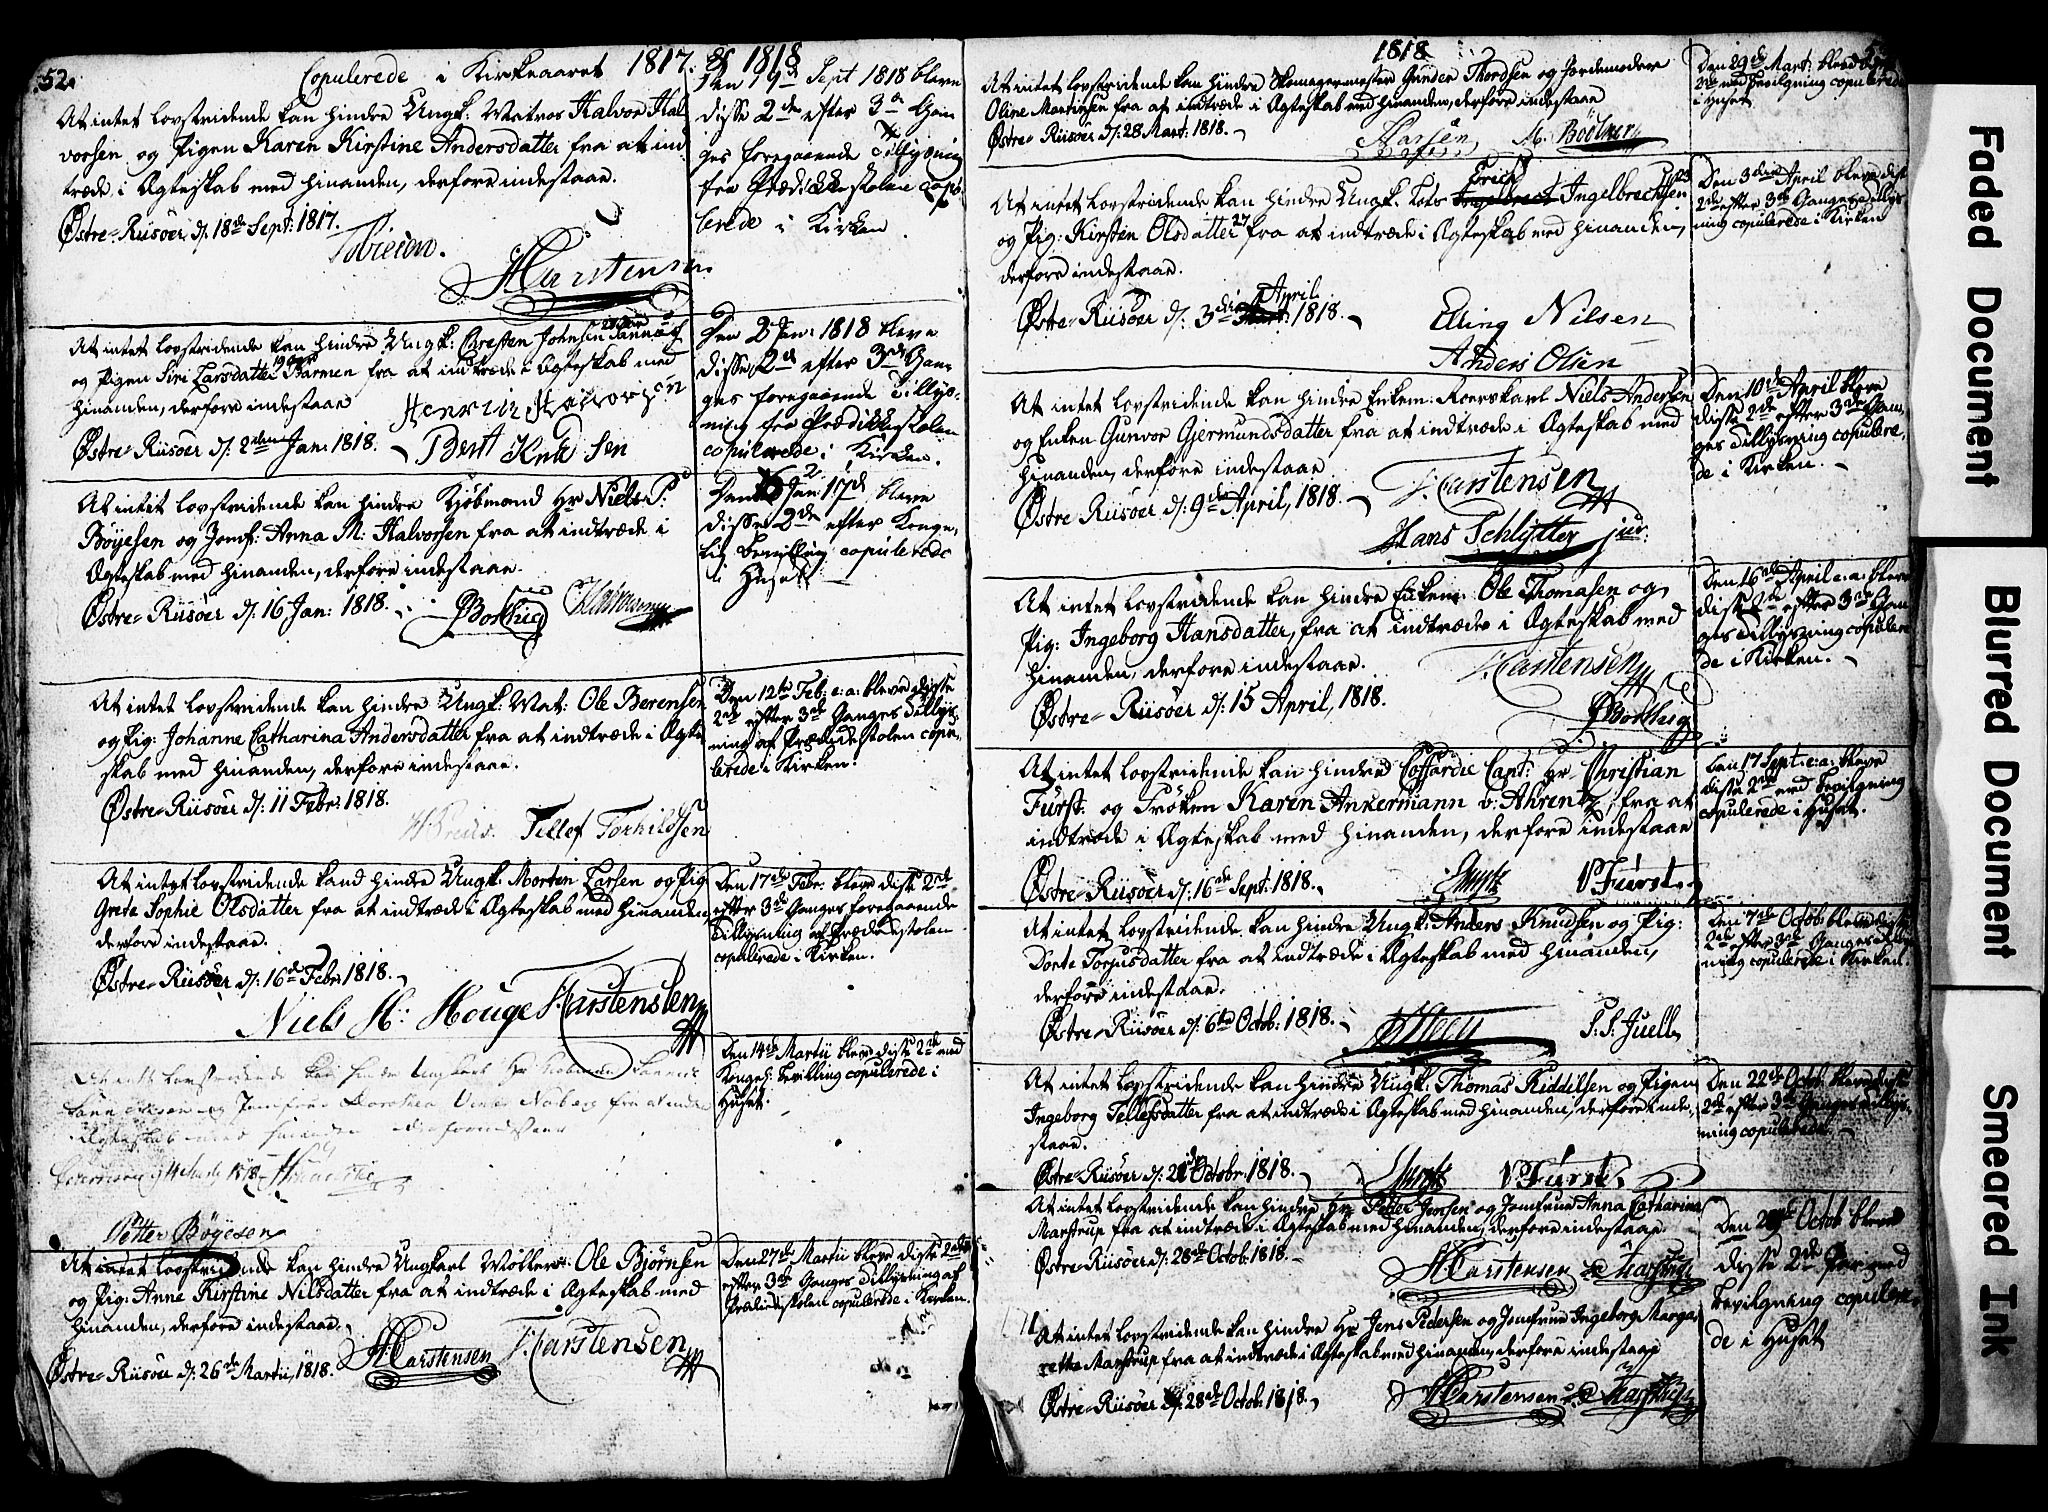 52.
Copulerede i Kirkeaaret 1817. & 1818
At intet lovstridende kan hindre Ungk: Matros Halvor Hal
vorsen og Pigen Karen Kirstine Andersdatter fra at ind
træde i Ægteskab med hinanden, derfore indestaae.
Østre-Riisöer d: 18de Sept: 1817.
HCarstensen
Den 19de Sept 1818 bleve
disse 2de efter 3de Gan
ges foregaaende Tillysning
fra Prædikestolen copu
lerede i Kirken.
At intet lovstridende kan hindre Ungk: Christen Johnsen
og Pigen Siri Larsdatter Barmen fra at indtræde i Ægteskab med
hinanden, derfore indestaae
Østre-Riisöer d: 2den Jan: 1818.
Henrich Halvorsen
Bent Knudsen
Den 2 Jan: 1818 bleve
disse 2de efter 3de Gan-
ges foregaaende Tillys-
ning fra Prædikkestolen
copulerede i Kirken.
At intet lovstridende kan hindre Kjöbmand Hr Niels P:
Böyesen og Jomf: Anna M: Halvorsen fra at indtræde i
Ægteskab med hinanden, derfore indestaae.
Østre-Riisöer d: 16 Jan: 1818.
Den Jan: 17d bleve
disse 2de efter Konge-
lig bevilling copulerede
i Huset
At intet lovstridende kan hindre Ungk: Mat: Ole Berensen
og Pig: Johanne Catharina Andersdatter fra at indtræde i Ægte
skab med hinanden, derfore indestaae.
Østre-Riisöer d: 11 Febr: 1818.
Tellef Torkildsen
Den 12te Feb: e: a: bleve disse
2de efter 3de Ganges Tillys-
ning af Prædikestolen copu-
lerede i Kirken.
At intet lovstridende kand hindre Ungk: Morten Larsen og Pig:
Grete Sophie Olsdatter fra at indtræde i Ægteskab med hinanden
derfore indestaae.
Østre-Riisöer d: 16de Febr: 1818.
Niels H: Houge HCarstensen
Den 17de Febr: bleve disse 2de
efter 3de Ganges foregaaende
Tillysning af Prædikestolen
copulerede i Kirken.
At intet lovstridende kan hindre Ungkarl Hr
og Jomfrue Dorothea fra at indtræde
Ægteskab med hinanden derfor indestaaer
Petter Böyesen
Den 14de Martii bleve disse 2de med
Kongel: bevilling copulerede i
Huset.
At intet lovstridende kan hindre Ungkarl Möller: Ole Björnsen
og Pig: Anne Kirstine Nilsdatter fra at indtræde i Ægteskab med
hinanden, derfore indestaae.
Østre-Riisöer d: 26de Martii, 1818.
HCarstensen HCarstensen
Den 27de Martii bleve disse 2de
efter 3de Ganges Tillysning af
Prædikestolen copulerede i Kirken.
1818
At intet lovstridende kan hindre Skomagermester Gunder Thordsen og Jordemoder
Oline Mortinsen fra at indtræde i Ægteskab med hinanden, derfore indestaae
Østre-Riisöer d: 28 Mart: 1818.
Den 29de Mart: bleve disse
2de med bevilgning copulerede
i Huset
Erich
At intet lovstridende kan hindre Ungk. Lods Ingelbrecht Ingelbrechtsen
og Pig: Kirsten Olsdatter 27 fra at indtræde i Ægteskab med hinanden,
derfore indestaae.
April
Østre-Riisöer d: 3die 1818.
Elling Nilsen
Anders Olsen
Den 3die April bleve disse
2de efter 3de Ganges Tillys
ning copulerede i Kirken
At intet lovstridende kan hindre Enkem: Roerskarl Niels Andersen
og Enken Gunvor Gjermundsdatter fra at indtræde i Ægteskab med
hinanden, derfore indestaae
Østre-Riisöer d: 9de April, 1818.
HCarstensen
Hans Schlytter jun:
Den 10de April bleve
disse 2de efter 3de Gan-
ges Tillysning copulere-
de i Kirken.
At intet lovstridende kan hindre Enkem: Ole Thomasen og
Pig: Ingeborg Hansdatter, fra at indtræde i Ægteskab med
hinanden, derfore indestaae.
Østre-Riisöer d: 15 April, 1818.
HCarstensen
Den 16de April e: a: bleve
disse 2de efter 3de Gan
ges Tillysning copulere
de i Kirken.
At intet lovstridende kan hindre Coffardie Capt: Hr Christian
Fürst og Fröken Karen Ankermann v: Ahrentz, fra at
indtræde i Ægteskab med hinanden, derfore indestaae
Østre-Riisöer d: 16de Sept: 1818.
Fürst
Den 17 Sept: e: a: bleve
disse 2de med bevilgning
copulerede i Huset.
At intet lovstridende kan hindre Ungk: Anders Knudsen og Pig:
Dorte Torjusdatter fra at indtræde i Ægteskab med hinanden,
derfore indestaae.
Østre-Riisöer d: 6te Octob: 1818.
P. S. Juell
Den 7de Octob: bleve disse
2de efter 3de Ganges Tillys
ning copulerede i Kirken.
At intet lovstridende kan hindre Ungk: Thomas Kiddilsen og Pigen
Ingeborg Tellefsdatter fra at indtræde i Ægteskab med hinanden, derfore inde-
staae.
Østre-Riisöer d: 21de Octobr: 1818.
Fürst
Den 22de Octob: bleve disse
2de efter 3de Ganges Tillys-
ning copulerede.
At intet lovstridende kan hindre Hr Peder Jensen og Jomfrue Anna Catharina
Marstrup fra at indtræde i Ægteskab med hinanden, derfore indestaae
Østre-Riisöer d: 28de Octob: 1818.
HCarstensen
Den 29de Octob: bleve
disse 2de Par med
bevilgning copulere-
de i Huset
At intet lovstridende kan hindre Hr Jens Pedersen og Jomfrue Ingeborg Marga
retha Marstrup fra at indtræde i Ægteskab med hinanden, derfore indestaae
Østre-Riisöer d: 28de Octob: 1818.
HCarstensen
Faded Document
Blurred Document
Smeared Ink